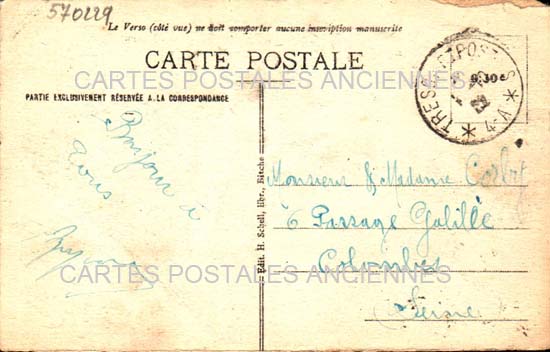 570229
Le Verso (côté vue) ne doit comporter aucune inscription manuscrite
CARTE POSTALE
CARTES POSTALES ANCIENNES
PARTIE EXCLUSIVEMENT RÉSERVÉE A LA CORRESPONDANCE
TRES POST S
* 4-A *
Bonjour à
tous
Edit. H. Schell, libr., Bitche
Monsieur & Madame
6 Passage Galilée
Colombes
Seine
CARTES POSTALES ANCIENNES